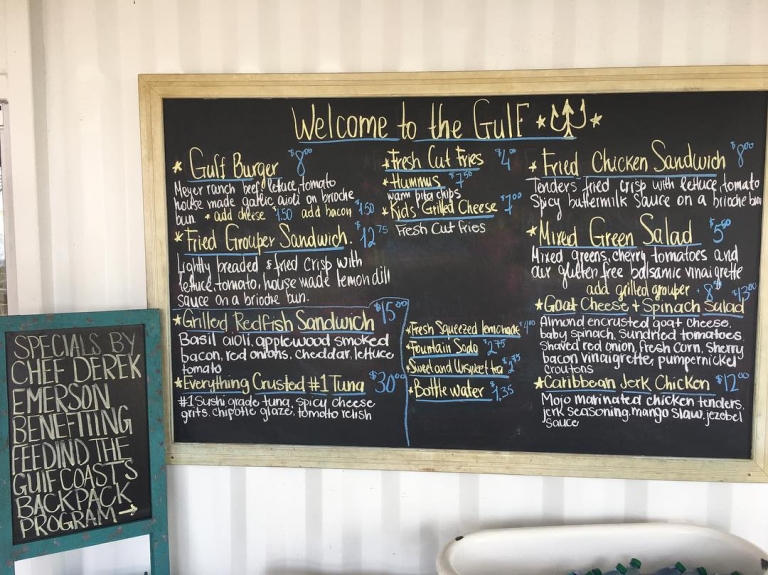 Welcome to the Gulf
Gulf Burger $8.00
Meyer ranch beef, lettuce, tomato
house made garlic aioli on brioche
bun * add cheese $1.50 add bacon $1.50
Fried Grouper Sandwich $12.75
Lightly breaded & fried crisp with
lettuce, tomato, house made lemon dill
sauce on a brioche bun.
Grilled Redfish Sandwich $15.00
Basil aioli, applewood smoked
bacon, red onions, cheddar, lettuce
tomato
Everything Crusted #1 Tuna $30.00
#1 Sushi grade tuna, spicy cheese
grits, chipotle glaze, tomato relish
Fresh Cut Fries $4.00
Hummus $7.50
warm pita chips
Kid's Grilled Cheese $7.00
Fresh Cut fries
Fresh Squeezed lemonade $4.00
Fountain Soda $2.75
Sweet and Unsweet tea
Bottle Water $1.35
Fried Chicken Sandwich $8.00
Tenders fried crisp with lettuce, tomato
Spicy buttermilk sauce on a brioche bun
Mixed Green Salad
Mixed greens, cherry tomatoes and
our gluten free balsamic vinaigrette
add grilled grouper
Goat Cheese + Spinach Salad $13.00
Almond encrusted goat cheese,
baby spinach, sundried tomatoes,
shaved red onion, fresh corn, sherry
bacon vinaigrette, pumpernickel
croutons
Caribbean Jerk Chicken $12.00
Mojo marinated chicken tenders,
jerk seasoning, mango slaw, jezobel
sauce
SPECIALS BY
CHEF DEREK
EMERSON
BENEFITING
FEEDIND THE
GULF COAST'S
BACKPACK
PROGRAM →